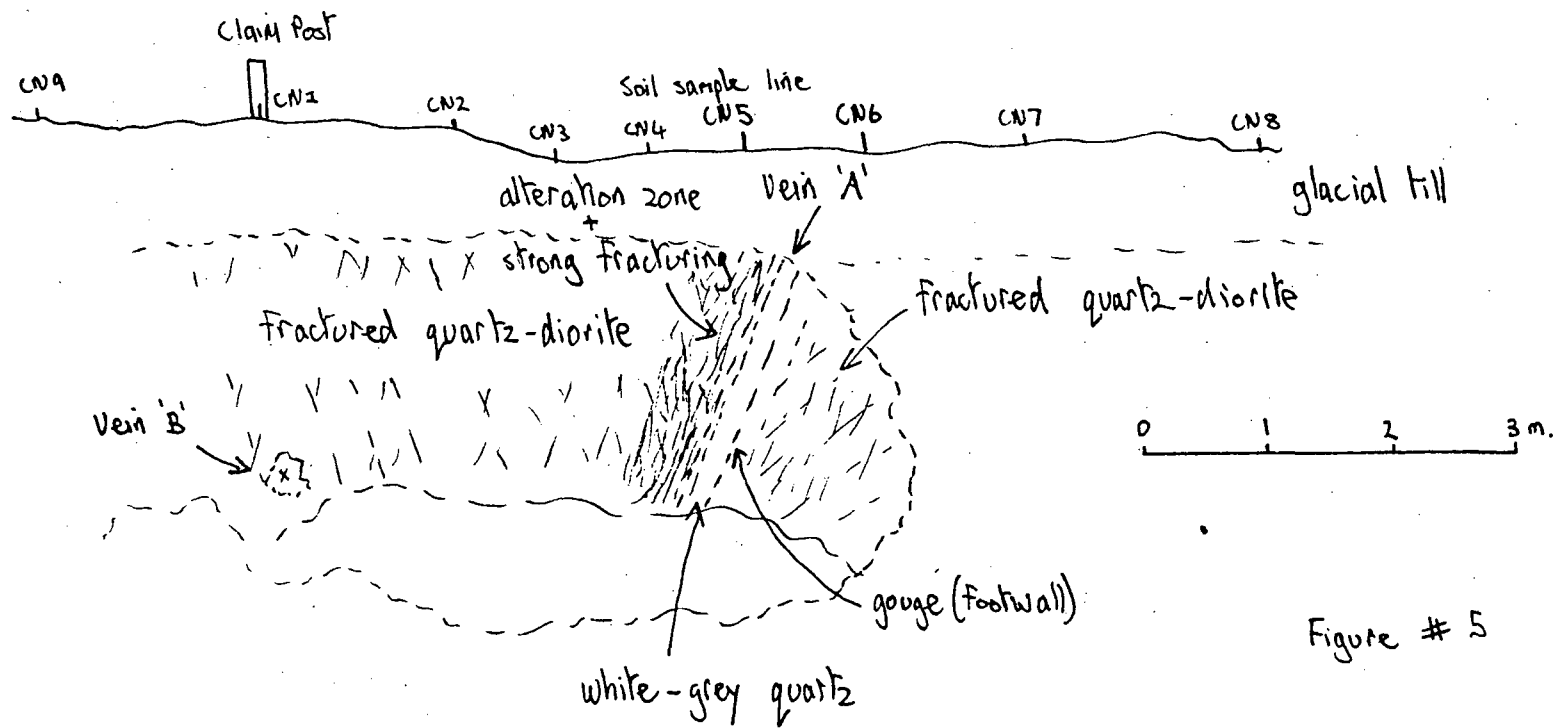 Claim Post
CN9
CN1
CN2
Soil sample line
CN3
CN4
CN5
CN6
CN7
CN8
alteration zone
+
strong fracturing
Vein 'A'
glacial till
fractured quartz-diorite
fractured quartz-diorite
Vein 'B'
x
0 1 2 3 m.
gouge (footwall)
white-grey quartz
Figure # 5